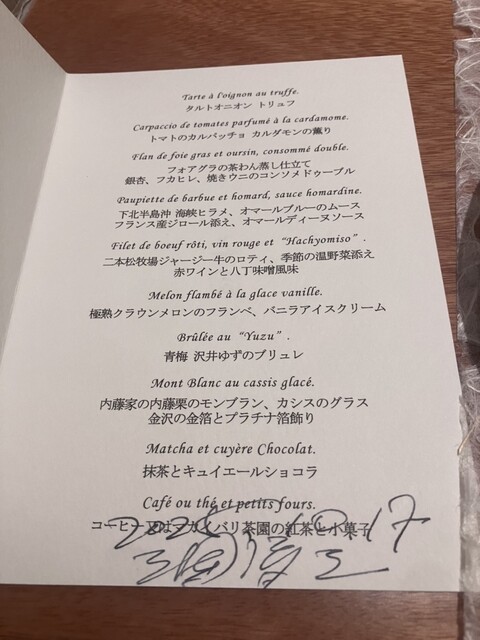 Tarte à l'oignon au truffe.
タルトオニオン トリュフ
Carpaccio de tomates parfumé à la cardamome.
トマトのカルパッチョ カルダモンの薫り
Flan de foie gras et oursin, consommé double.
フォアグラの茶わん蒸し仕立て
銀杏、フカヒレ、焼きウニのコンソメドゥーブル
Paupiette de barbue et homard, sauce homardine.
下北半島沖 海峡ヒラメ、オマールブルーのムース
フランス産ジロール添え、オマールディーヌソース
Filet de boeuf rôti, vin rouge et “Hachyomiso” .
二本松牧場ジャージー牛のロティ、季節の温野菜添え
赤ワインと八丁味噌風味
Melon flambé à la glace vanille.
極熟クラウンメロンのフランベ、バニラアイスクリーム
Brûlée au “Yuzu” .
青梅 沢井ゆずのブリュレ
Mont Blanc au cassis glacé.
内藤家の内藤栗のモンブラン、カシスのグラス
金沢の金箔とプラチナ箔飾り
Matcha et cuyère Chocolat.
抹茶とキュイエールショコラ
Café ou thé et petits fours.
コーヒー又はマカイバリ茶園の紅茶と小菓子